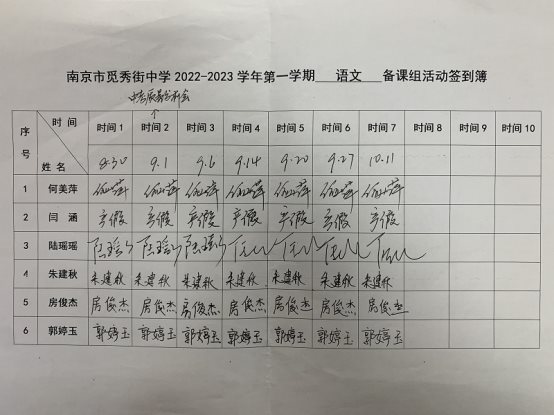 南京市觅秀街中学 2022-2023 学年第一学期 语文 备课组活动签到簿
序号 时间 姓名 时间 1 时间 2 时间 3 时间 4 时间 5 时间 6 时间 7 时间 8 时间 9 时间 10
8.30 9.1 9.6 9.14 9.20 9.27 10.11
1 何美萍 何美萍 何美萍 何美萍 何美萍 何美萍 何美萍 何美萍
2 闫涵 产假 产假 产假 产假 产假 产假 产假
3 陆瑶瑶 陆瑶瑶 陆瑶瑶 陆瑶瑶
4 朱建秋 朱建秋 朱建秋 朱建秋 朱建秋 朱建秋 朱建秋 朱建秋
5 房俊杰 房俊杰 房俊杰 房俊杰 房俊杰 房俊杰 房俊杰 房俊杰
6 郭婷玉 郭婷玉 郭婷玉 郭婷玉 郭婷玉 郭婷玉 郭婷玉 郭婷玉